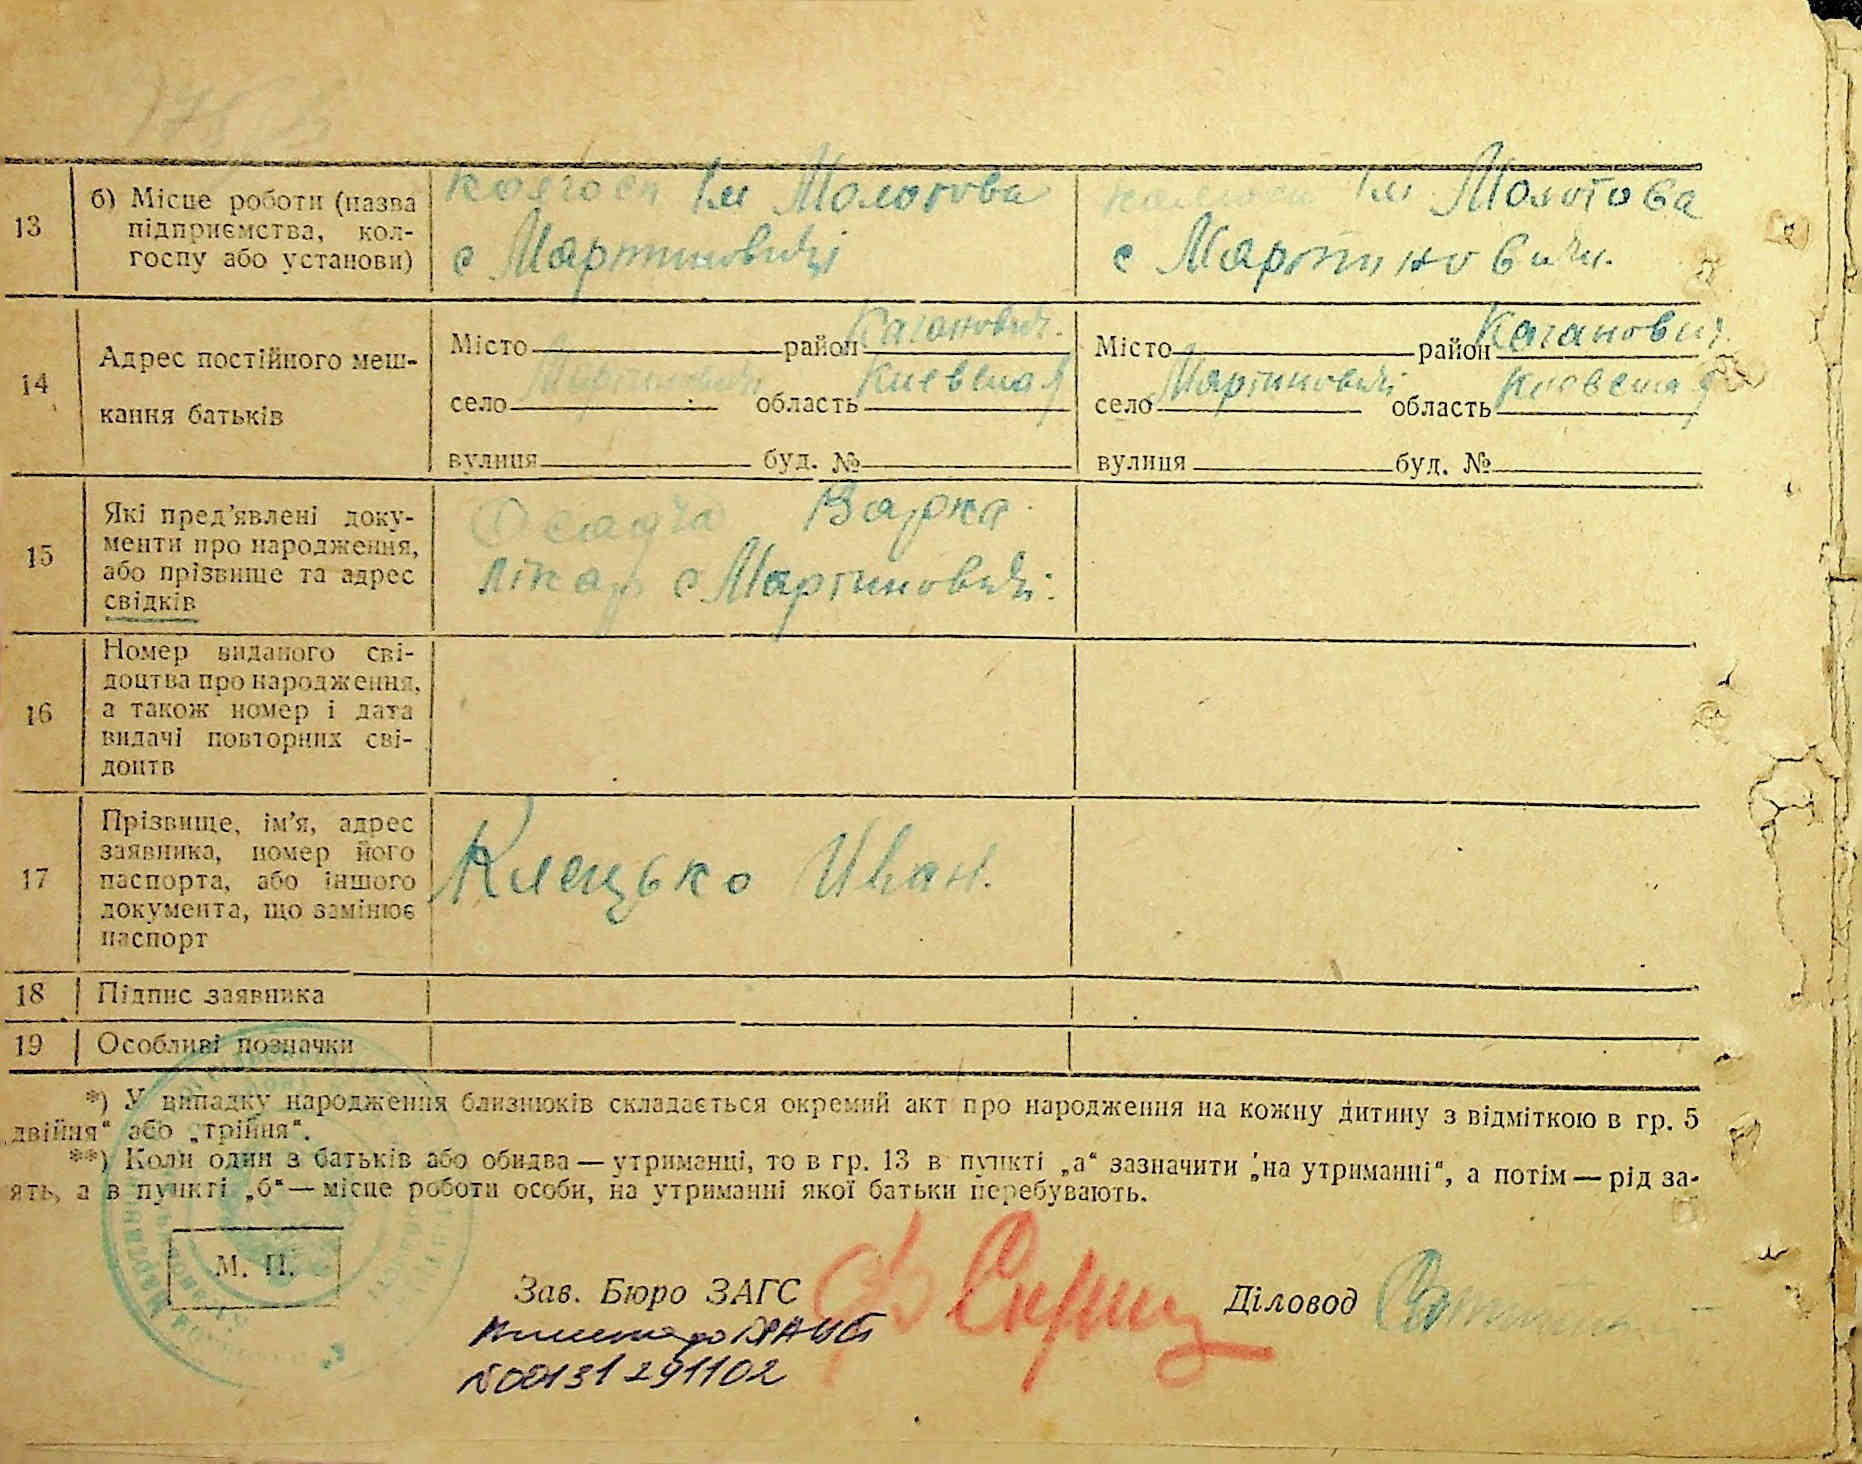 13
б) Місце роботи (назва
підприємства, кол-
госпу або установи)
колгосп Ім Молотова
с Мартиновичі
колгосп Ім Молотова
с Мартиновичі.
14
Адрес постійного меш-
кання батьків
Місто район Каганович.
село Мартиновичі область Киевская
вулиця буд. №
Місто район Каганович.
село Мартиновичі область Киевская
вулиця буд. №
15
Які пред'явлені доку-
менти про народження,
або прізвище та адрес
свідків
Осадча Варка
лікар с Мартиновичі
16
Номер виданого сві-
доцтва про народження,
а також номер і дата
видачі повторних сві-
доцтв
17
Прізвище, ім'я, адрес
заявника, номер його
паспорта, або іншого
документа, що замінює
паспорт
Клецько Иван.
18 Підпис заявника
19 Особливі позначки
*) У випадку народження близнюків складається окремий акт про народження на кожну дитину з відміткою в гр. 5
„двійня“ або „трійня“.
**) Коли один з батьків або обидва — утриманці, то в гр. 13 в пункті „а“ зазначити „на утриманні“, а потім — рід за-
ять, а в пункті „б“ — місце роботи особи, на утриманні якої батьки перебувають.
М. П.
Зав. Бюро ЗАГС
Діловод
№00131291102